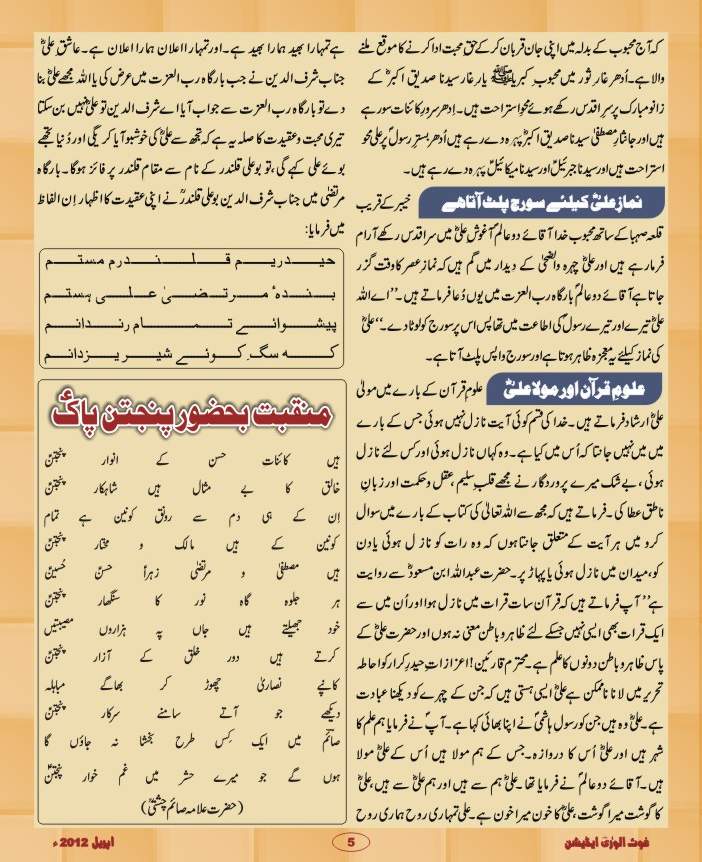 کہ آج محبوب کے بدلہ میں اپنی جان قربان کر کے حق محبت ادا کرنے کا موقع ملنے
والا ہے۔ اُدھر غارِ ثور میں محبوب کبریا ﷺ یارِ غار سیدنا صدیق اکبرؓ کے
زانو مبارک پر سر اقدس رکھے ہوئے محوِ استراحت ہیں۔ اِدھر سرورِ کائنات سو رہے
ہیں اور جانثارِ مصطفیٰ سیدنا صدیق اکبرؓ پہرہ دے رہے ہیں اُدھر بسترِ رسولؐ پر علیؓ محو
استراحت ہیں اور سیدنا جبرئیلؑ اور سیدنا میکائیلؑ پہرہ دے رہے ہیں۔
نماز علیؓ کیلئے سورج پلٹ آتا ھے
خیبر کے قریب
قلعہ صہبا کے ساتھ محبوب خدا آقائے دو عالمؐ آغوشِ علیؓ میں سر اقدس رکھے آرام
فرما رہے ہیں اور علیؓ چہرہ والضحیٰ کے دیدار میں گم ہیں کہ نمازِ عصر کا وقت گزر
جاتا ہے آقائے دو عالمؐ بارگاہ رب العزت میں یوں دُعا فرماتے ہیں۔ ’’اے اللہ
علیؓ تیرے اور تیرے رسولؐ کی اطاعت میں تھا پس اس پر سورج کو لوٹا دے۔‘‘ علیؓ
کی نماز کیلئے یہ معجزہ ظاہر ہوتا ہے اور سورج واپس پلٹ آتا ہے۔
علوم قرآن اور مولا علیؓ
علومِ قرآن کے بارے میں مولیٰ
علیؓ ارشاد فرماتے ہیں۔ خدا کی قسم کوئی آیت نازل نہیں ہوئی جس کے بارے
میں میں نہیں جانتا کہ اُس میں کیا ہے۔ وہ کہاں نازل ہوئی اور کس لئے نازل
ہوئی، بے شک میرے پروردگار نے مجھے قلبِ سلیم، عقل و حکمت اور زبانِ
ناطق عطا کی۔ فرماتے ہیں کہ مجھ سے اللہ تعالیٰ کی کتاب کے بارے میں سوال
کرو میں ہر آیت کے متعلق جانتا ہوں کہ وہ رات کو نازل ہوئی یا دن
کو، میدان میں نازل ہوئی یا پہاڑ پر۔ حضرت عبداللہ ابن مسعودؓ سے روایت
ہے’’ آپ فرماتے ہیں کہ قرآن سات قرات میں نازل ہوا اور اُن میں سے
ایک قرات بھی ایسی نہیں جسکے لئے ظاہر و باطن معنہ نہ ہوں اور حضرت علیؓ کے
پاس ظاہر و باطن دونوں کا علم ہے۔ محترم قارئین! اعزازاتِ حیدرِ کرار کو احاطہ
تحریر میں لانا ناممکن ہے علیؓ ایسی ہستی ہیں کہ جن کے چہرے کو دیکھنا عبادت
ہے۔ علیؓ وہ ہیں جن کو رسول ہاشمیؐ نے اپنا بھائی کہا ہے۔ آپؐ نے فرمایا ہم علم کا
شہر ہیں اور علیؓ اُس کا دروازہ۔ جس کے ہم مولا ہیں اُس کے علیؓ مولا
ہیں۔ آقائے دو عالمؐ نے فرمایا تھا۔ علیؓ ہم سے ہیں اور ہم علیؓ سے ہیں، علیؓ
کا گوشت میرا گوشت، علیؓ کا خون میرا خون ہے۔ علیؓ تمہاری روح ہماری روح
ہے تمہارا بھید ہمارا بھید ہے۔ اور تمہارا اعلان ہمارا اعلان ہے۔ عاشقِ علیؓ
جناب شرف الدین نے جب بارگاہ رب العزت میں عرض کی یا اللہ مجھے علیؓ بنا
دے تو بارگاہ رب العزت سے جواب آیا اے شرف الدین تو علیؓ نہیں بن سکتا
تیری محبت و عقیدت کا صلہ یہ ہے کہ تجھ سے علیؓ کی خوشبو آیا کریگی اور دُنیا تجھے
بوئے علی کہے گی، تو بو علی قلندر کے نام سے مقام قلندر پر فائز ہوگا۔ بارگاہ
مرتضیٰ میں جناب شرف الدین بو علی قلندرؒ نے اپنی عقیدت کا اظہار اِن الفاظ
میں فرمایا:
حیدریم قلندرم مستم
بندۂ مرتضیٰ علی ہستم
پیشوائے تمام رندانم
کہ سگِ کوئے شیر یزدانم
منقبت بحضور پنجتن پاکؑ
ہیں کائنات حسن کے انوار پنجتن
خالق کا بے مثال ہیں شاہکار پنجتن
اِن کے ہی دَم سے رونق کونین ہے تمام
کونین کے ہیں مالک و مختار پنجتن
ہیں مصطفیٰؐ و مرتضیٰؑ زہراؑ حسنؑ حُسینؑ
ہر جلوہ گاہ نور کا سنگھار پنجتن
خود جھیلتے ہیں جاں پہ ہزاروں مصیبتیں
کرتے ہیں دور خلق کے آزار پنجتن
کانپے نصاریٰ چھوڑ کر بھاگے مباہلہ
دیکھے جو آتے سامنے سرکار پنجتن
صائمؔ میں ایک کِس طرح بخشا نہ جاؤں گا
ہوں گے جو میرے حشر میں غم خوار پنجتنؑ
(حضرت علامہ صائم چشتیؒ)
غوث الوریٰ ایڈیشن
5
اپریل 2012ء